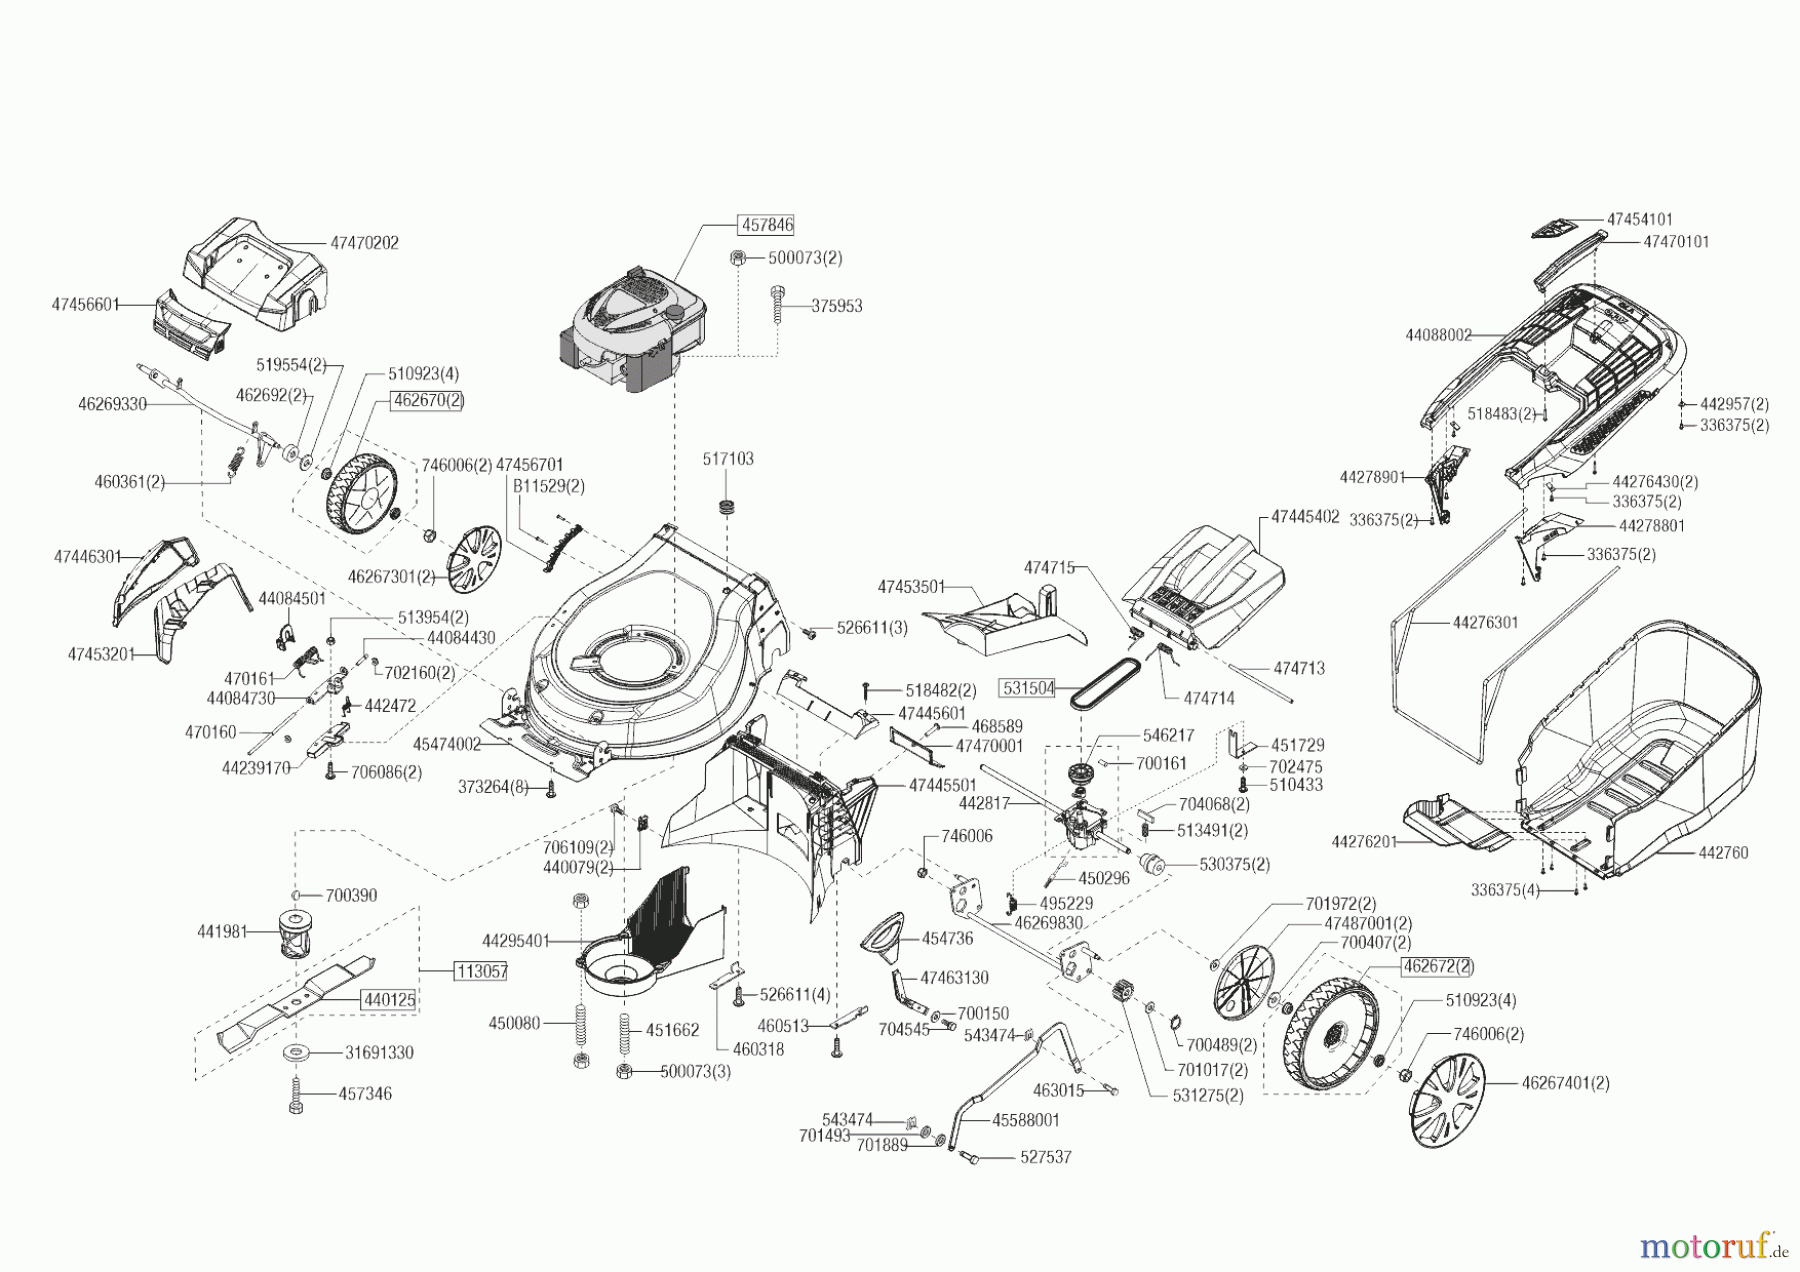 457846
500073(2)
375953
47470202
47456601
519554(2)
510923(4)
462692(2)
462670(2)
46269330
460361(2)
746006(2)
47456701
B11529(2)
517103
46267301(2)
47446301
44084501
513954(2)
44084430
47453201
470161
702160(2)
44084730
442472
470160
44239170
706086(2)
45474002
373264(8)
526611(3)
518482(2)
47445601
468589
47470001
47445501
706109(2)
440079(2)
700390
441981
113057
440125
31691330
457346
44295401
450080
451662
500073(3)
526611(4)
460318
460513
47453501
474715
47445402
531504
474714
474713
546217
700161
451729
702475
510433
442817
704068(2)
513491(2)
746006
530375(2)
450296
495229
46269830
454736
47463130
700150
704545
543474
463015
45588001
543474
701493
701889
527537
701972(2)
47487001(2)
700407(2)
462672(2)
510923(4)
746006(2)
700489(2)
701017(2)
531275(2)
46267401(2)
47454101
47470101
44088002
518483(2)
442957(2)
336375(2)
44278901
336375(2)
44276430(2)
336375(2)
44278801
336375(2)
44276301
44276201
442760
336375(4)
motoruf.de